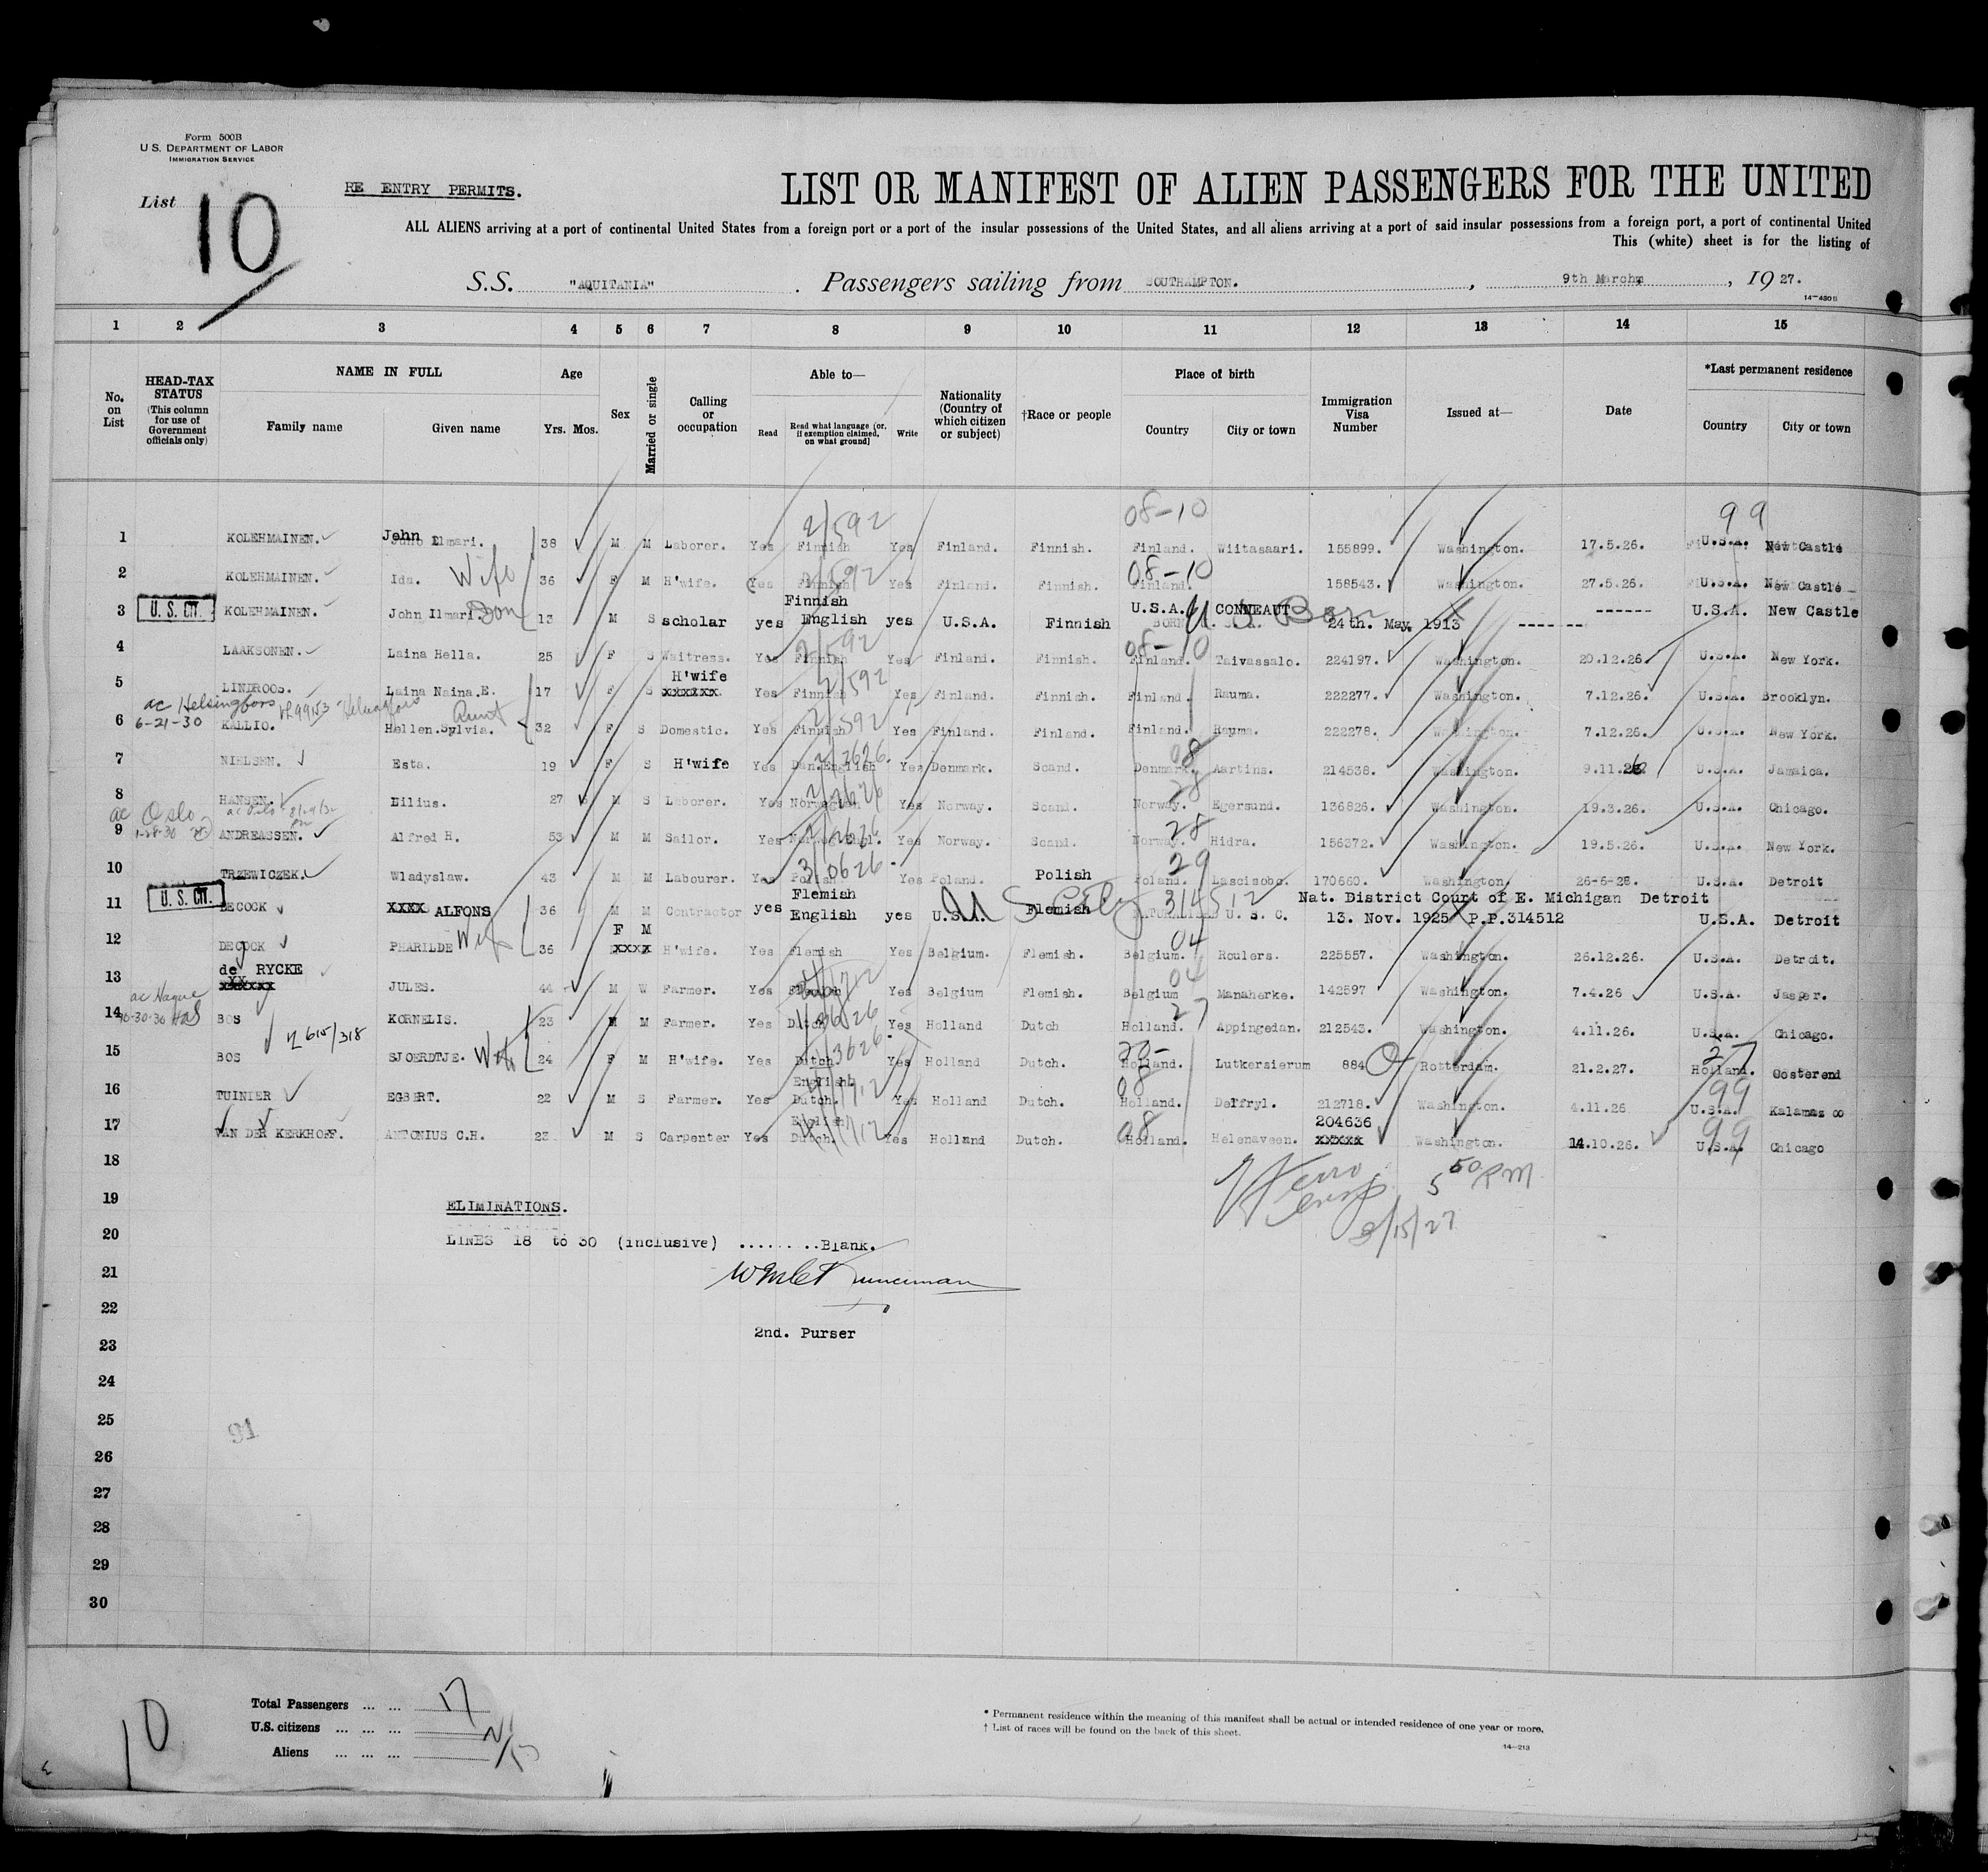 Form 500B
U.S. DEPARTMENT OF LABOR
IMMIGRATION SERVICE
List 10
RE ENTRY PERMITS.
LIST OR MANIFEST OF ALIEN PASSENGERS FOR THE UNITED
ALL ALIENS arriving at a port of continental United States from a foreign port or a port of the insular possessions of the United States, and all aliens arriving at a port of said insular possessions from a foreign port, a port of continental United
This (white) sheet is for the listing of
S.S. "AQUITANIA" . Passengers sailing from SOUTHAMPTON. , 9th March , 19 27.
14-480 B
1 2 3 4 5 6 7 8 9 10 11 12 13 14 15
No. on List
HEAD-TAX STATUS (This column for use of Government officials only)
NAME IN FULL
Family name Given name
Age
Yrs. Mos.
Sex
Married or single
Calling or occupation
Able to—
Read Read what language (or, if exemption claimed, on what ground) Write
Nationality (Country of which citizen or subject)
†Race or people
Place of birth
Country City or town
Immigration Visa Number
Issued at—
Date
*Last permanent residence
Country City or town
2/592 08-10 99
1 KOLEHMAINEN. John Ilmari. 38 M M Laborer. Yes Finnish Yes Finland. Finnish. Finland. Wiitasaari. 155899. Washington. 17.5.26. U.S.A. New Castle
2/592 08-10
2 KOLEHMAINEN. Ida. Wife 36 F M H'wife. Yes Finnish Yes Finland. Finnish. Finland. 158543. Washington. 27.5.26. U.S.A. New Castle
3 U.S. CIT. KOLEHMAINEN. John Ilmari. Son 13 M S scholar yes Finnish English yes U.S.A. Finnish U.S.A. CONNEAUT U S Born 24th. May, 1913 ------- ------ U.S.A. New Castle
2/592 08-10
4 LAAKSONEN. Laina Hella. 25 F S Waitress. Yes Finnish Yes Finland. Finnish. Finland. Taivassalo. 224197. Washington. 20.12.26. U.S.A. New York.
2/592
5 LINDROOS. Laina Naina E. 17 F S H'wife xxxxxx Yes Finnish Yes Finland. Finnish. Finland. Rauma. 222277. Washington. 7.12.26. U.S.A. Brooklyn.
ac Helsingfors 6-21-30
2/592
6 KALLIO. Hellen.Sylvia. Aunt 32 F S Domestic. Yes Finnish Yes Finland. Finland. Finland. Rauma. 222278. Washington. 7.12.26. U.S.A. New York.
2/2626. 08
7 NIELSEN. Esta. 19 F S H'wife Yes Dan.English Yes Denmark. Scand. Denmark. Aartins. 214538. Washington. 9.11.26 U.S.A. Jamaica.
2/2626 28
8 HANSEN. Eilius. 27 M S Laborer. Yes Norwegian Yes Norway. Scand. Norway. Egersund. 136826. Washington. 19.3.26. U.S.A. Chicago.
ac Oslo 1-28-30
2/2626 28
9 ANDREASSEN. Alfred H. 53 M M Sailor. Yes Yes Norway. Scand. Norway. Hidra. 156372. Washington. 19.5.26. U.S.A. New York.
3/0626. 29
10 TRZEWICZEK. Wladyslaw. 43 M M Labourer. Yes Polish Yes Poland. Polish Poland. Lascisobo. 170660. Washington. 26-6-26. U.S.A. Detroit
11 U.S. CIT. DECOCK XXXX ALFONS 36 M M Contractor yes Flemish English yes U.S.A. U S City Flemish 314512 U. S. C. Nat. District Court of E. Michigan Detroit 13. Nov. 1925 P.P.314512 U.S.A. Detroit
04
12 DECOCK PHARILDE Wife 36 F M xxxx H'wife. Yes Flemish Yes Belgium. Flemish. Belgium. Roulers. 225557. Washington. 26.12.26. U.S.A. Detroit.
04
13 de RYCKE xxxxxx JULES. 44 M W Farmer. Yes Yes Belgium Flemish. Belgium Manaherke. 142597 Washington. 7.4.26 U.S.A. Jasper.
ac Hague 10-30-30
27
14 BOS KORNELIS. 23 M M Farmer. Yes Dutch Yes Holland Dutch Holland. Appingedan. 212543. Washington. 4.11.26. U.S.A. Chicago.
615/318 27
15 BOS SJOERDTJE. Wife 24 F M H'wife. Yes Dutch Yes Holland Dutch. Holland. Lutkersierum 884 Rotterdam. 21.2.27. Holland. Oosterend
08 99
16 TUINIER EGBERT. 22 M S Farmer. Yes English. Dutch. Yes Holland Dutch. Holland. Delfryl. 212718. Washington. 4.11.26 U.S.A. Kalamazoo
08 99
17 VAN DER KERKHOFF. ANTONIUS C.H. 23 M S Carpenter Yes English Dutch. Yes Holland Dutch. Holland. Helenaveen. 204636 xxxxx Washington. 14.10.26. U.S.A. Chicago
18
5 50 PM
19
3/15/27
ELIMINATIONS.
20
LINES 18 to 30 (inclusive) ........Blank.
21
22
2nd. Purser
23
24
25
91
26
27
28
29
30
Total Passengers ... ... 17
U.S. citizens ... ... ... 2
Aliens ... ... ... 15
10
* Permanent residence within the meaning of this manifest shall be actual or intended residence of one year or more.
† List of races will be found on the back of this sheet.
14-213